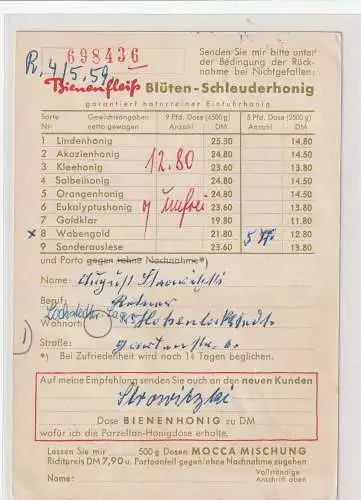 698436
Senden Sie mir bitte unter
der Bedingung der Rück-
nahme bei Nichtgefallen:
R. 4/5.59
Bienenfleiß Blüten-Schleuderhonig
garantiert naturreiner Einfuhrhonig
Sorte Gewichtsangaben 9 Pfd. Dose (4500 g) 5 Pfd. Dose (2500 g)
Nr. netto gewogen Anzahl DM Anzahl DM
1 Lindenhonig 25.30 14.80
2 Akazienhonig 24.80 14.50
3 Kleehonig 12.80 23.60 13.80
4 Salbeihonig 24.80 14.50
5 Orangenhonig 24.80 14.50
6 Eukalyptushonig 23.60 13.80
7 Goldklar 19.80 11.80
x 8 Wabengold 21.80 12.80
9 Sonderauslese 23.60 13.80
und Porto gegen/ohne Nachnahme*)
Name: August Strowitzki
Beruf: Rentner
Wohnort:
Straße:
*) Bei Zufriedenheit wird nach 14 Tagen beglichen.
1)
Auf meine Empfehlung senden Sie auch an den neuen Kunden
Strowitzki
Dose BIENENHONIG zu DM
wofür ich die Porzellan-Honigdose erhalte.
Lassen Sie mir 500 g Dosen MOCCA MISCHUNG
Richtpreis DM 7,90 u. Portoanteil gegen/ohne Nachnahme zugehen
Name: Vollständige
Anschrift oben